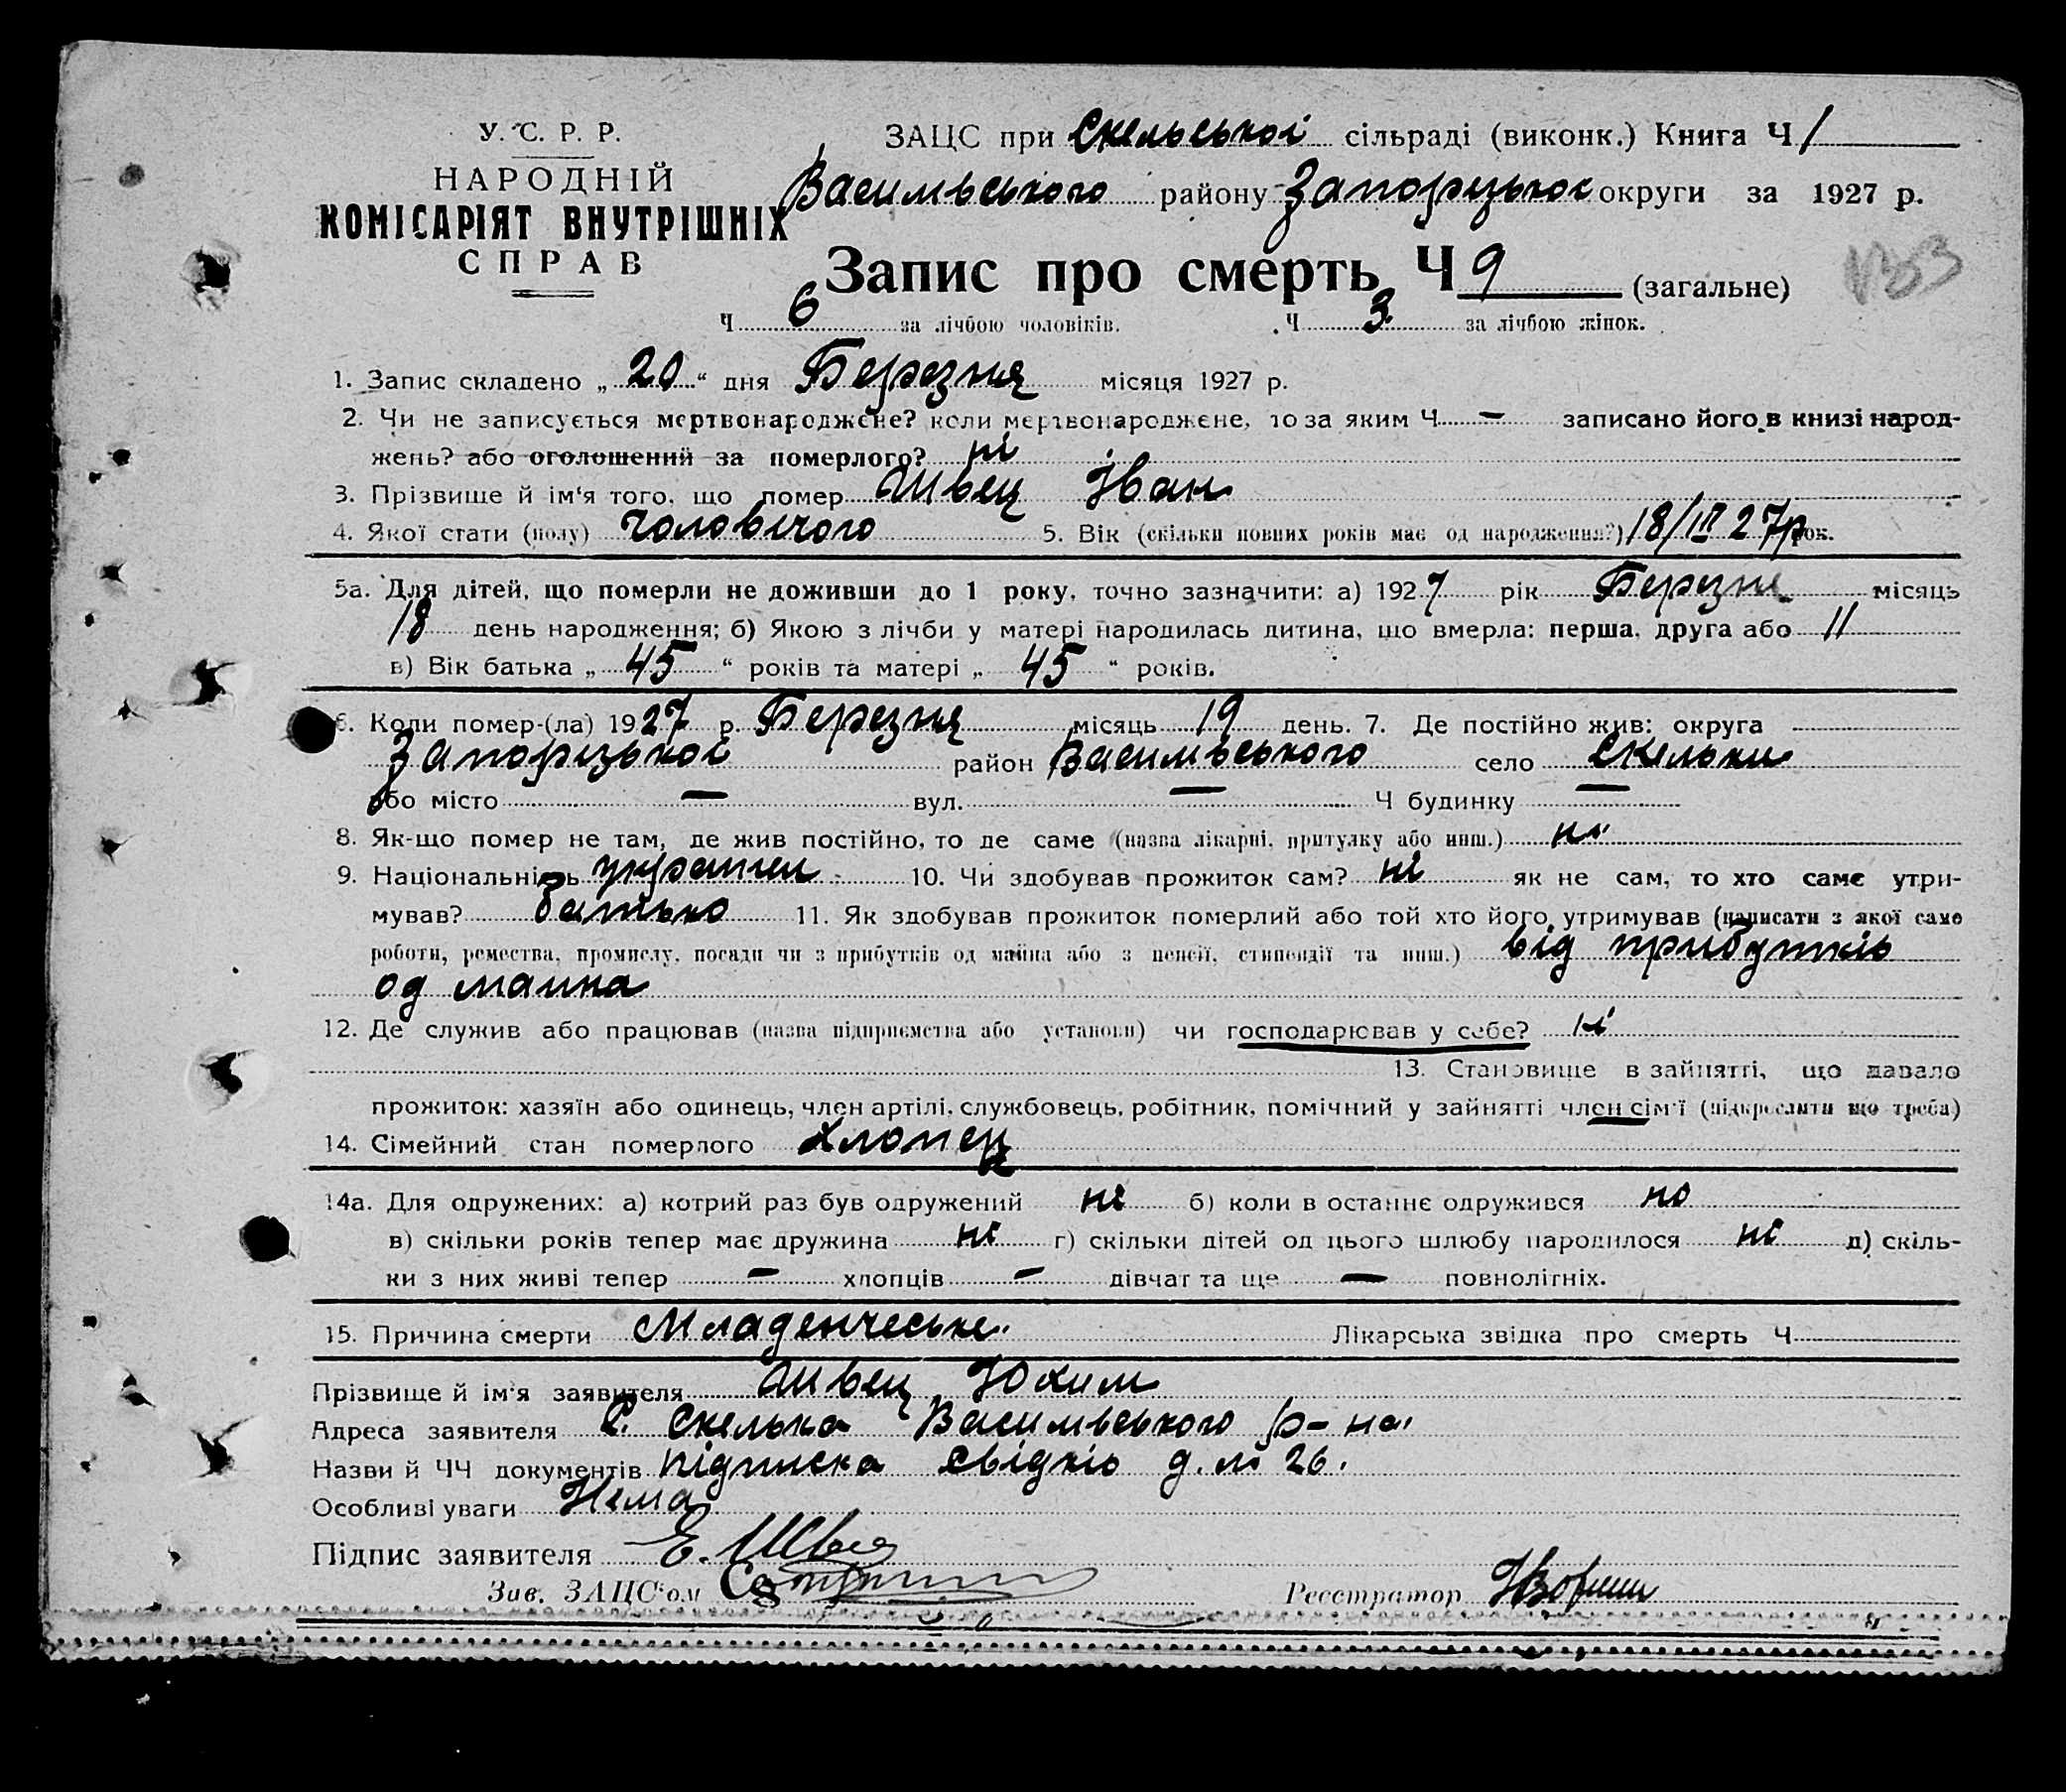 У. С. Р. Р.
НАРОДНІЙ
КОМІСАРІЯТ ВНУТРІШНІХ
СПРАВ
ЗАЦС при Скельської сільраді (виконк.) Книга Ч 1
Василівського району Запорізької округи за 1927 р.
Запис про смерть Ч 9 (загальне)
Ч 6 за лічбою чоловіків. Ч 3 за лічбою жінок.
1. Запис складено „20“ дня Березня місяця 1927 р.
2. Чи не записується мертвонароджене? коли мертвонароджене, то за яким Ч — записано його в книзі народ-
жень? або оголошений за померлого? ні
3. Прізвище й ім'я того, що помер Швец Іван
4. Якої стати (полу) чоловічого 5. Вік (скільки повних років має од народження?) 18/III 27р рок.
5а. Для дітей, що померли не доживши до 1 року, точно зазначити: а) 1927 рік Березня місяць
18 день народження; б) Якою з лічби у матері народилась дитина, що вмерла: перша, друга або 11
в) Вік батька „45“ років та матері „45“ років.
6. Коли помер-(ла) 1927 р. Березня місяць 19 день. 7. Де постійно жив: округа
Запорізької район Василівського село Скельки
або місто — вул. — Ч будинку —
8. Як-що помер не там, де жив постійно, то де саме (назва лікарні, притулку або инш.) ні
9. Національність українец 10. Чи здобував прожиток сам? ні як не сам, то хто саме утри-
мував? батько 11. Як здобував прожиток померлий або той хто його утримував (написати з якої саме
роботи, ремества, промислу, посади чи з прибутків од майна або з пенсії, стипендії та инш.) від прибутків
од маина
12. Де служив або працював (назва підприємства або установи) чи господарював у себе? ні
13. Становище в зайнятті, що давало
прожиток: хазяїн або одинець, член артілі, службовець, робітник, помічний у зайнятті член сім'ї (підкреслити що треба)
14. Сімейний стан померлого хлопец
14а. Для одружених: а) котрий раз був одружений ні б) коли в останнє одружився ні
в) скільки років тепер має дружина ні г) скільки дітей од цього шлюбу народилося ні д) скіль-
ки з них живі тепер — хлопців — дівчат та ще — повнолітніх.
15. Причина смерти Младенческе Лікарська звідка про смерть Ч
Прізвище й ім'я заявителя Швец Юхим
Адреса заявителя С. Скелька Василівського р-на
Назви й ЧЧ документів підписка свідків д. № 26.
Особливі уваги Нема
Підпис заявителя Е. Швец
Зав. ЗАЦС'ом
Реєстратор